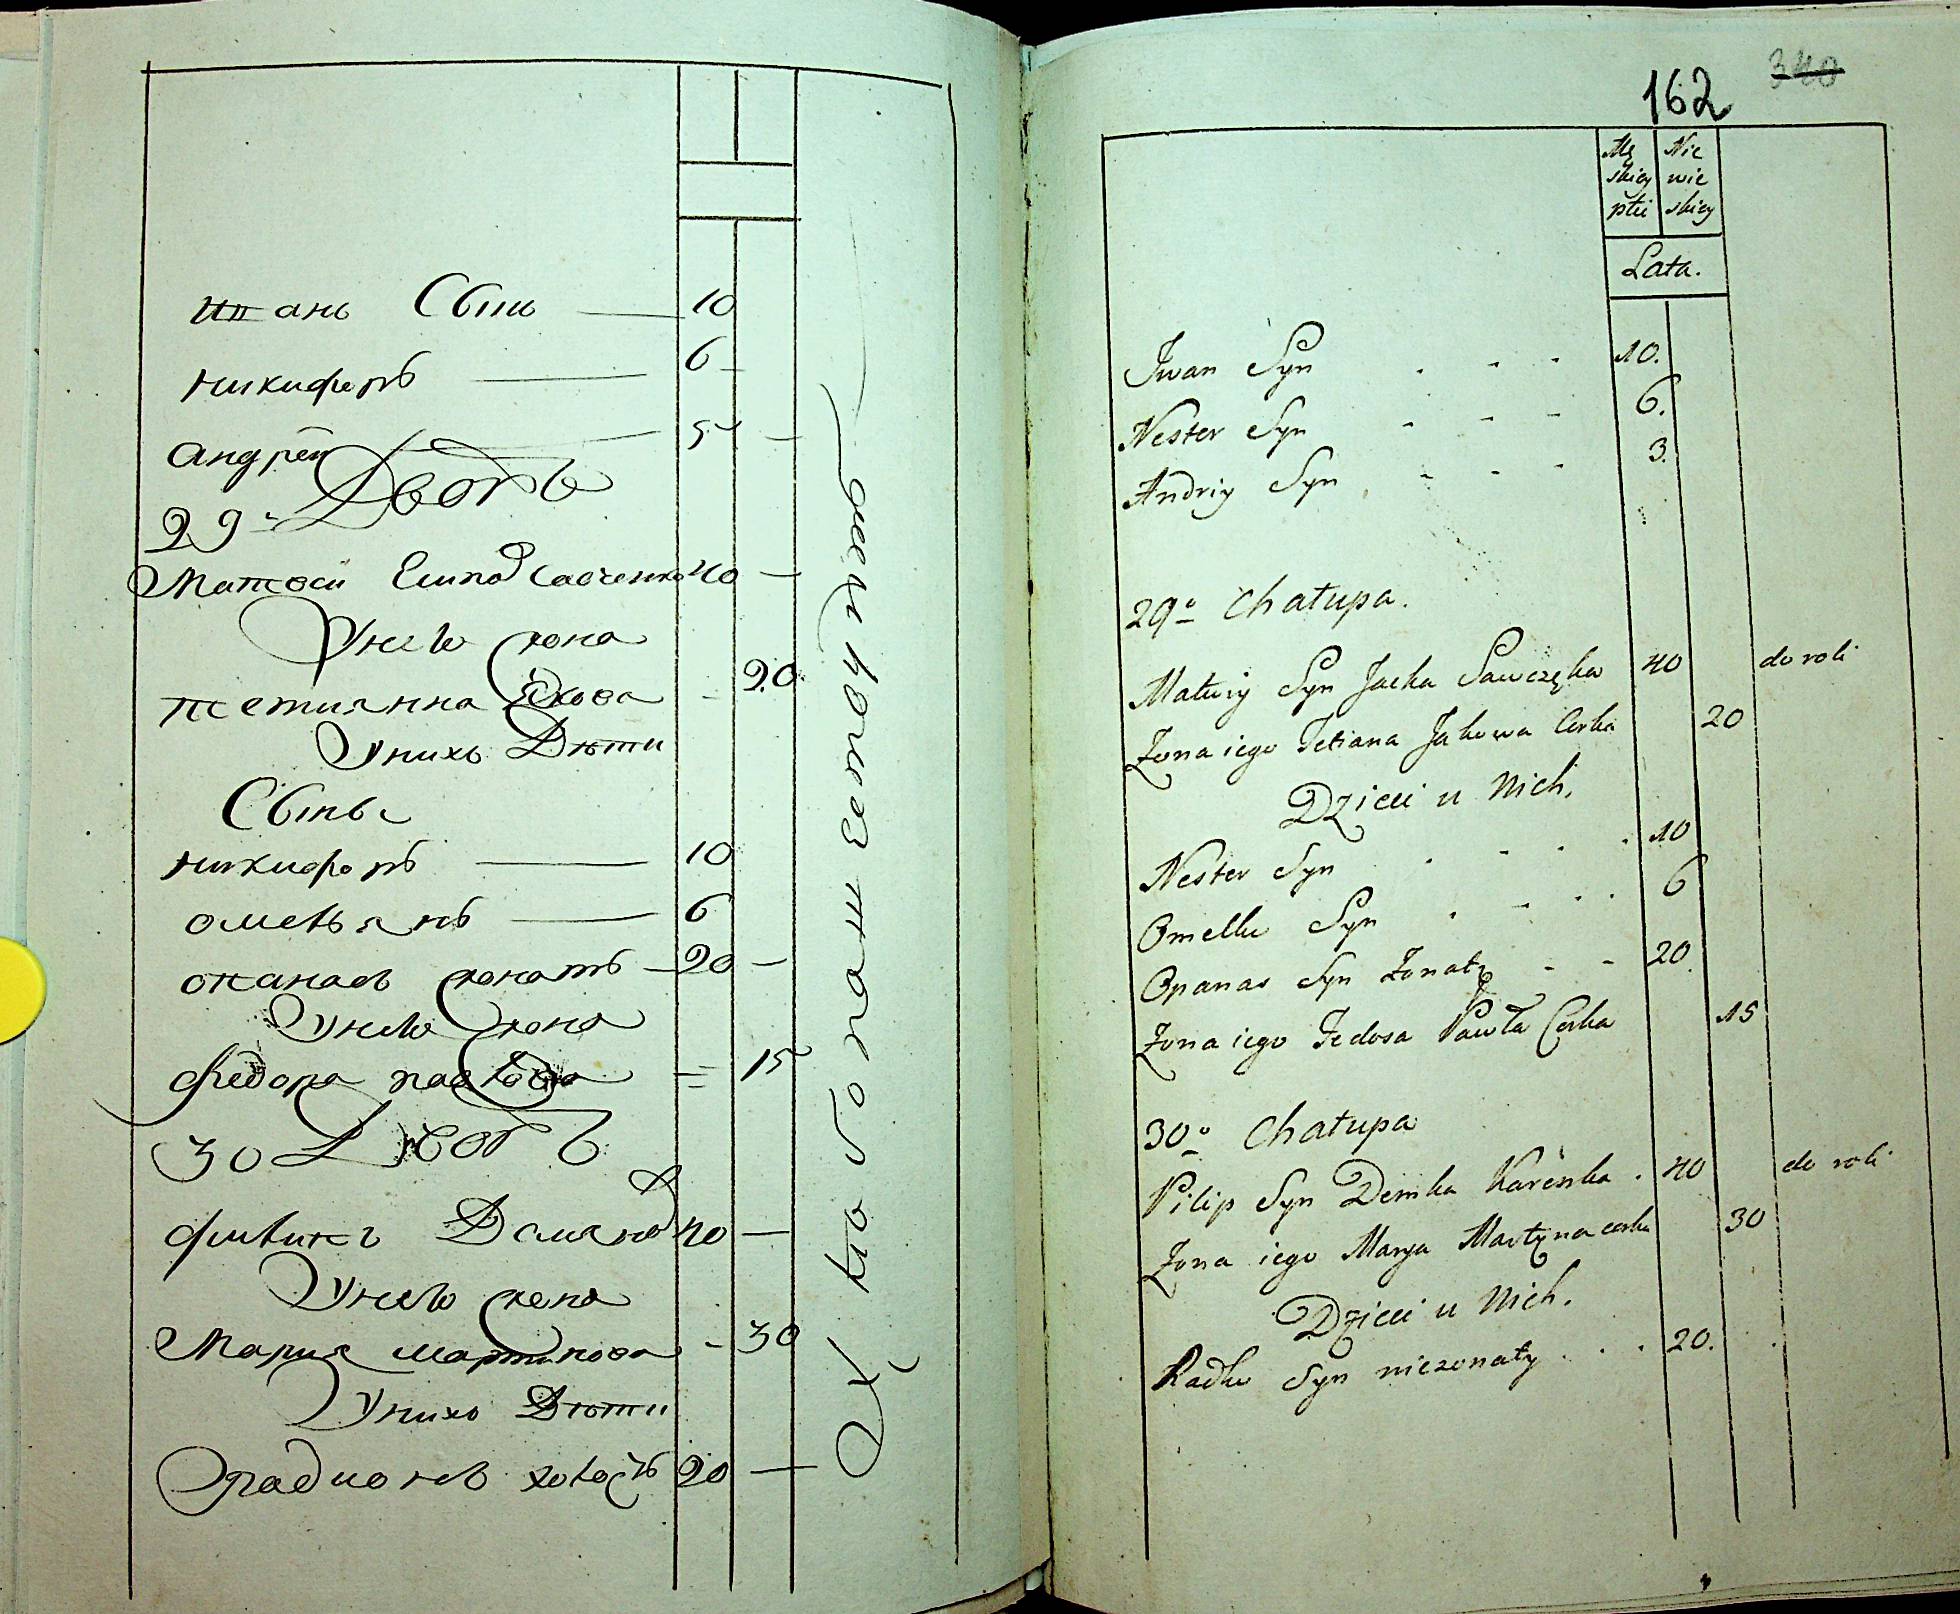 Иван Сынъ 10
Никифоръ 6
Андрей 5
29 Дворъ
Матвей Савченко 40
У нево жена
Тетиянна Якова 20
У нихъ Дѣти
Сынъ
Никифоръ 10
Омельянъ 6
Опанасъ женатъ 20
У нево жена
Федора Павлова 15
30 Дворъ
Филипъ Демяно 40
У нево жена
Мария Мартинова 30
У нихъ Дѣти
Радионъ холостъ 20
340
162
Mę skiey płci
Nie wie skiey
Lata.
Jwan Syn 10.
Nester Syn 6.
Andriy Syn 3.
29o Chałupa.
Matwiy Syn Jacka Sawczęka 40 do roli
Zona iego Tetiana Jakowa Corka 20
Dzieci u Nich.
Nester Syn 10
Omelko Syn 6
Opanas Syn Zonaty 20
Zona iego Fedosa Pawła Corka 15
30o Chałupa
Pilip Syn Demka Kareńka 40 do roli
Zona iego Marya Martyna corka 30
Dzieci u Nich.
Radko Syn niezonaty 20.